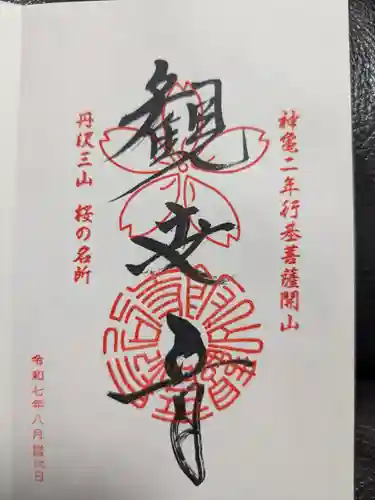 神亀二年行基菩薩開山
観世音
丹沢三山 桜の名所
令和七年八月 日